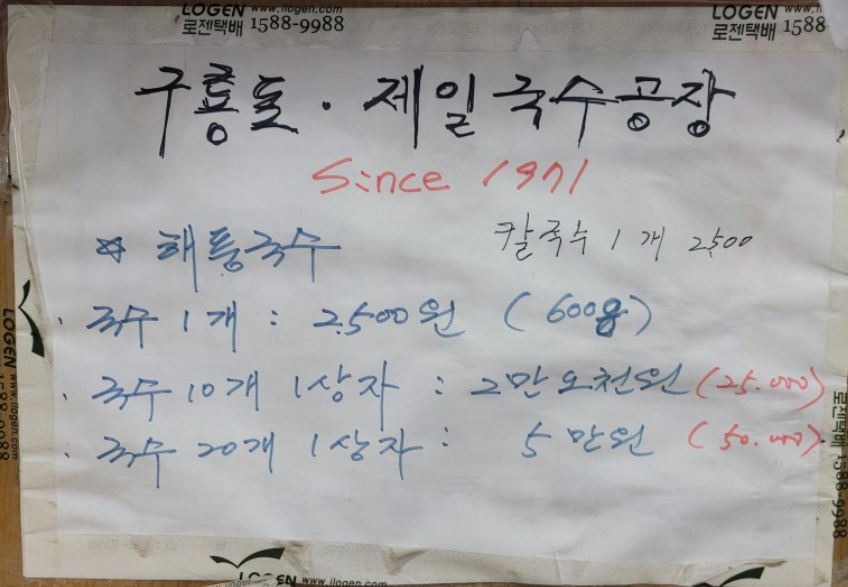 LOGEN www.ilogen.com
로젠택배 1588-9988
LOGEN www.
로젠택배 1588
구룡포 · 제일국수공장
Since 1971
☆ 해풍국수
칼국수 1개 2,500
· 국수 1개 : 2,500원 (600g)
· 국수 10개 1상자 : 2만오천원 (25.000)
· 국수 20개 1상자 : 5만원 (50.000)
LOGEN www.ilogen.com
1588-9988
로젠택배 1588-9988
LOGEN www.ilogen.com